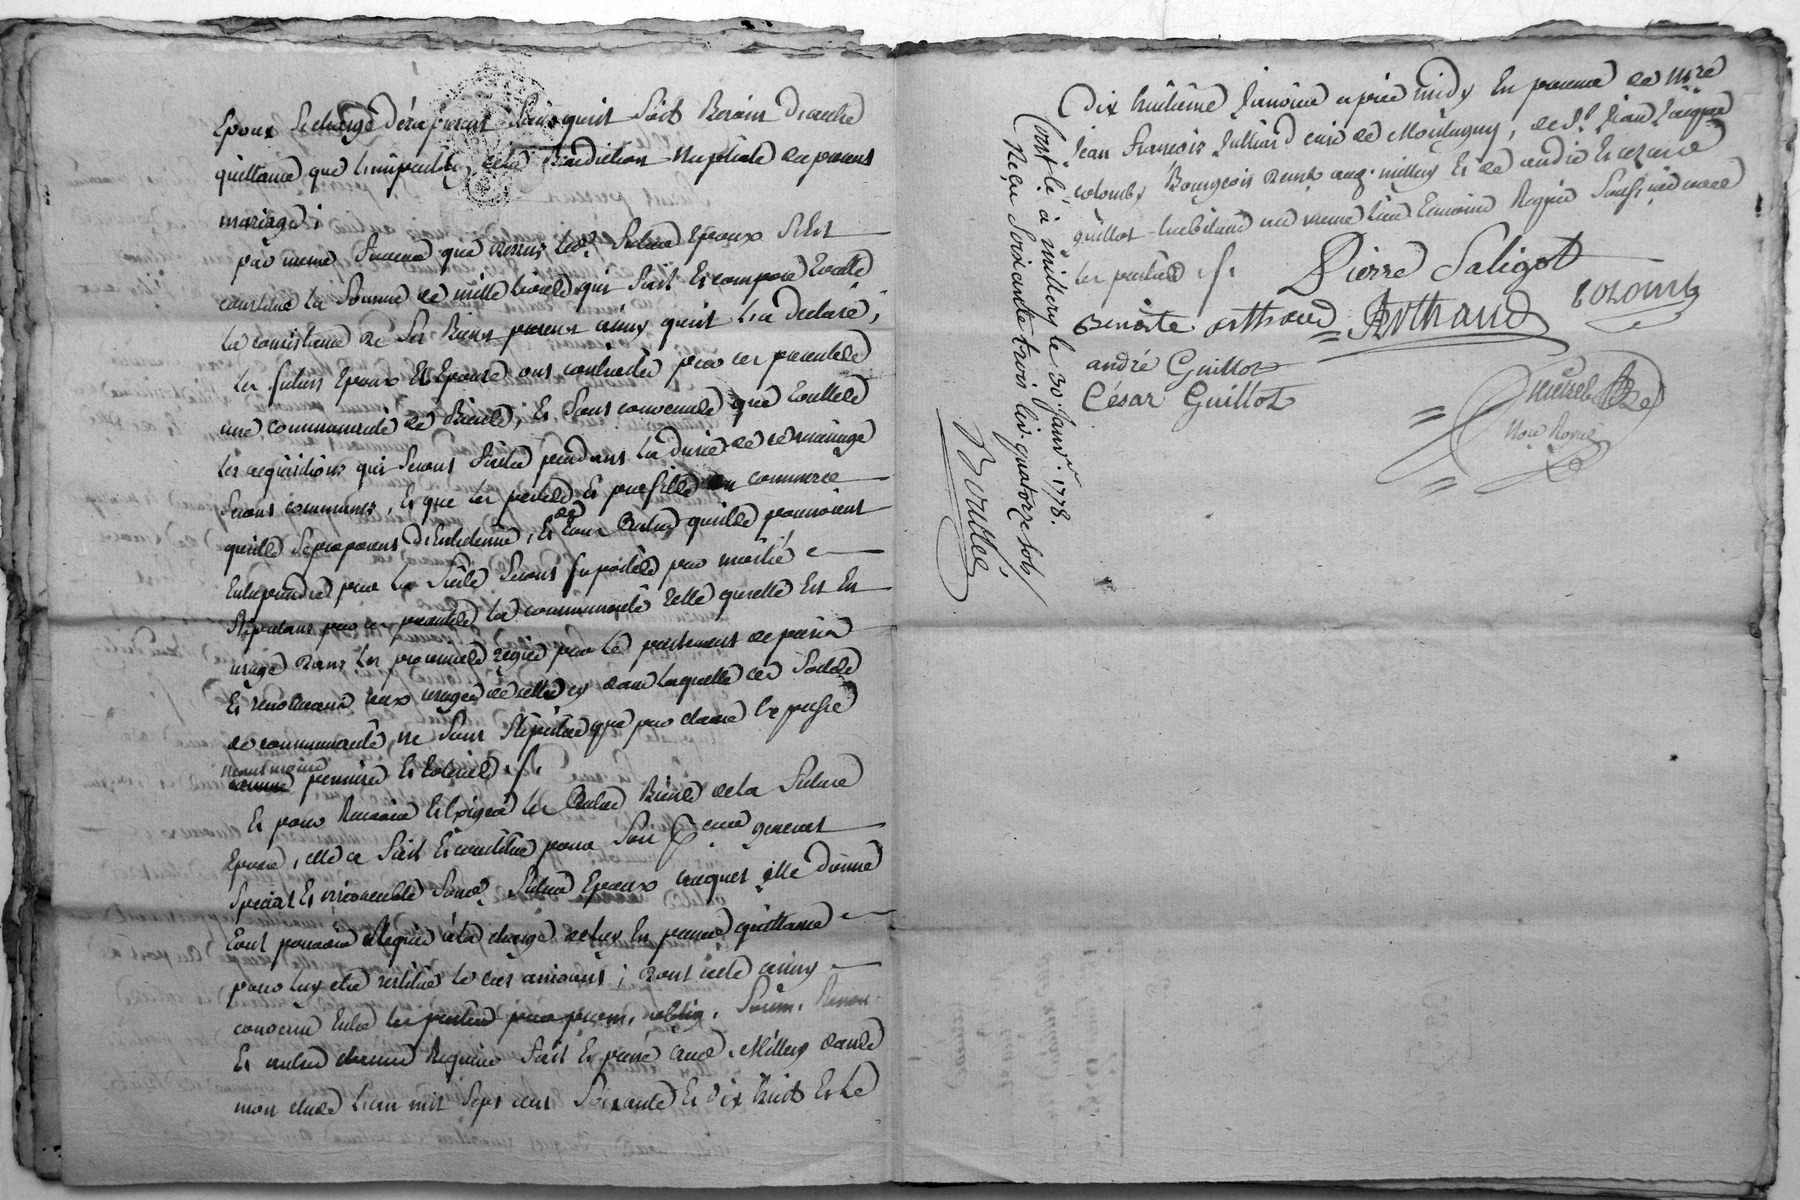 Epoux Se charge dés apresent Sans quil Soit Besoin D'autre
quittance que limpartition de la Benediction Nuptiale du present
mariage ;
par meme faveur que dessus led. futur Epoux S'est
constitué la Somme de mille livres qui fait Et compose toutte
la consistance de Ses Biens presens ainsy quil l'a declaré ;
les futurs Epoux Et Epouse ont contractés par ces presentes
une communauté de Biens, Et Sont convenus que touttes
les acquisitions qui Seront faites pendant la durée de ce mariage
Seront communes, Et que les pertes Et profits du commerce
qu'ils Se proposent D'Entretenir, Et de tous Autres quils pourroient
Entreprendre par la Suite Seront Suportés par moitié
Stipulans par ces presentes la communauté telle quelle Est En
usage dans les provinces régies par le parlement de paris
Et renonceant aux usages de celle cy dans laquelle ces Sortes
de communauté, ne Sont Stipulées que par clause Expresse
neantmoins
permises Et tolerées ./.
Et pour Recevoir Et Exiger les Autres Biens de la future
Epouse, elle a fait Et constitué pour Son P.eur general
Special Et irrevocable Sond. futur Epoux auquel elle donne
tout pouvoir Requis à la charge de luy En passer quittance
pour luy etre restitué le cas arrivant ; dont acte ainsy
convenu Entre les parties par prom. oblig. Soum. Renon.
Et autres clauses Requises fait Et passé aud. Millery dans
mon etude l'an mil Sept cent Soixante Et dix huit Et Le
Dix huitieme Janvier après midy En presence de Mre
Jean François Julliard curé de Montagny, de Sr. Jean
colomb Bourgeois demt. aud. millery Et de andré Et cezard
guillot habitans du meme lieu temoins Requis Soussignés avec
les parties ./.
Pierre Saligot
Benoite arthaud
Arthaud
Colomb
andré Guillot
César Guillot
Nore Royal
Cont.lé à millery le 30. Janv.r 1778.
Reçu Soixante trois liv. quatorze sols
Boullée